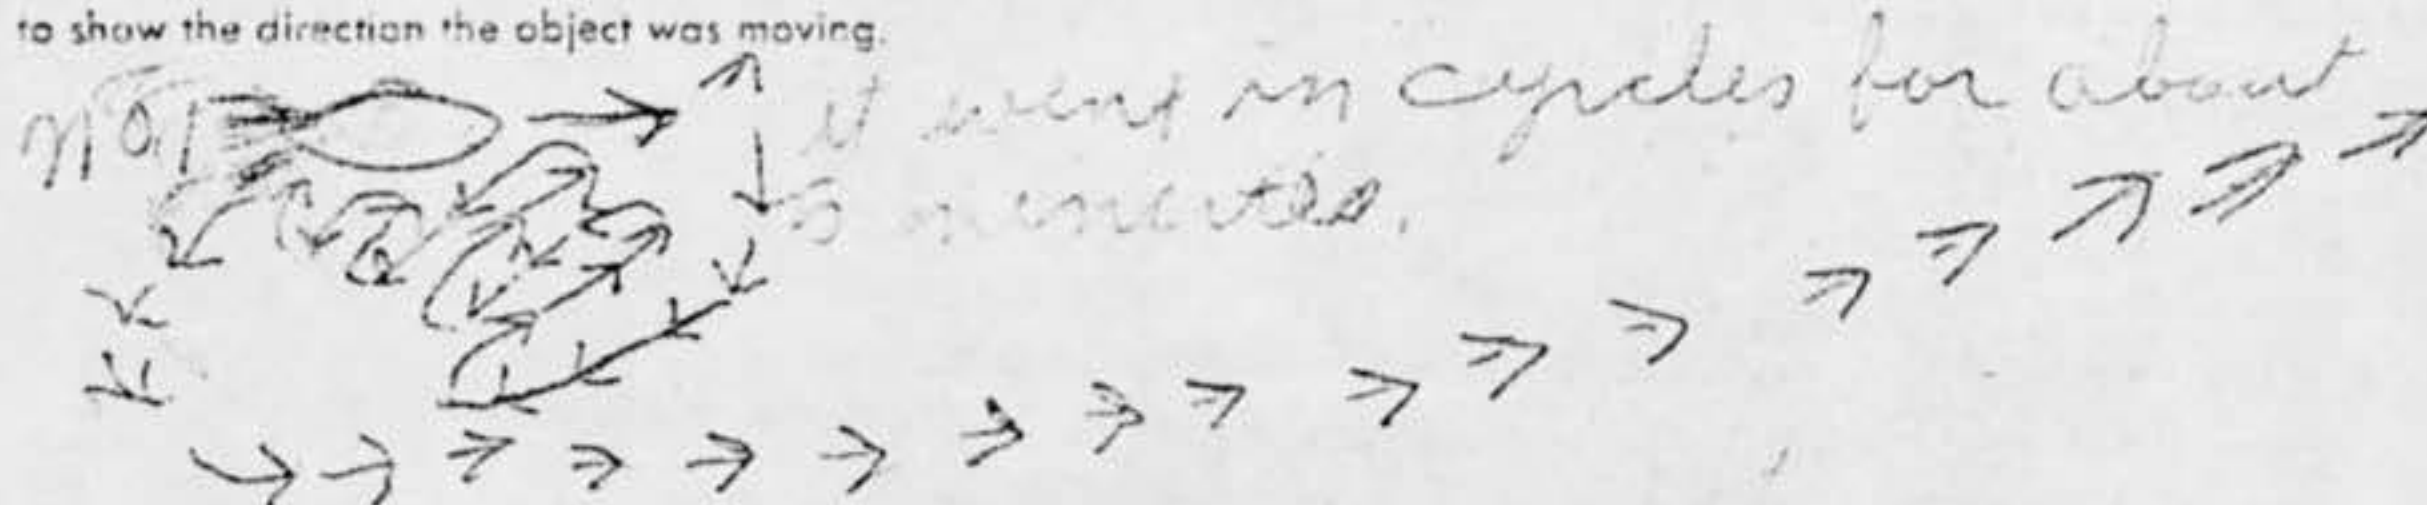 to show the direction the object was moving.
No 1
It went in cycles for about
5 minutes.